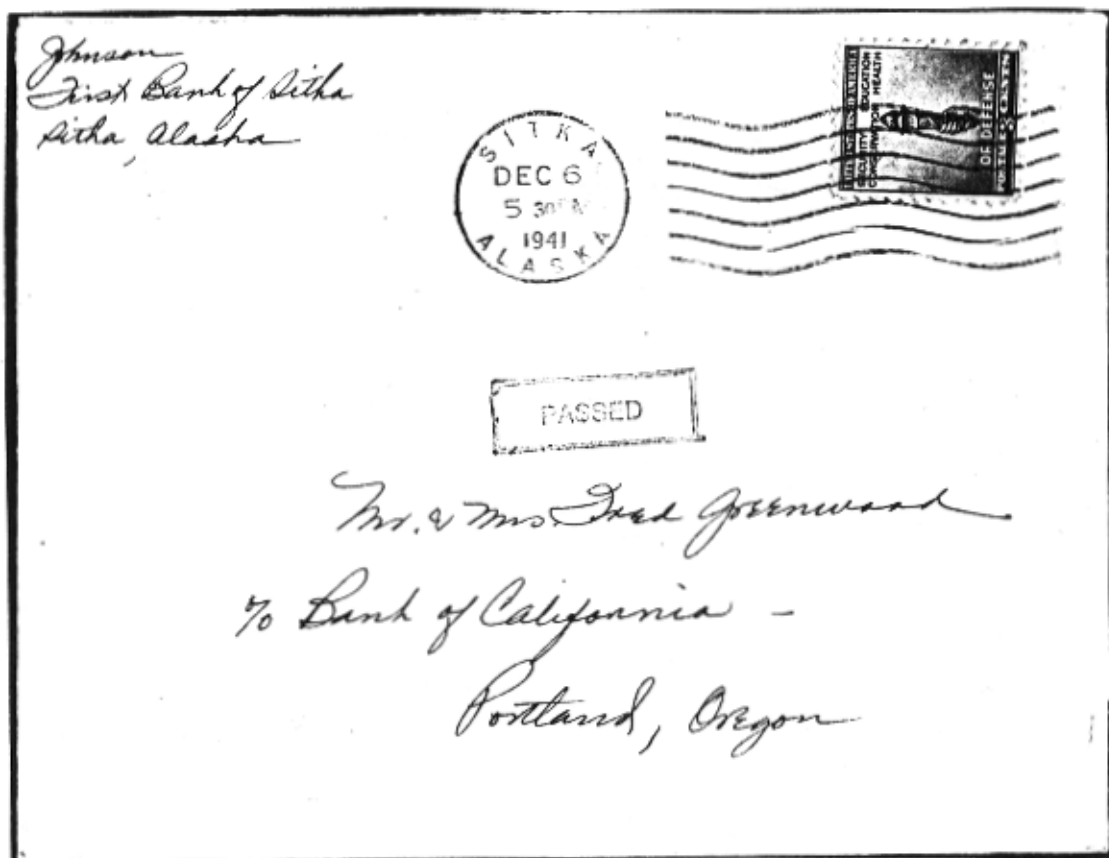 Johnson
First Bank of Sitka
Sitka, Alaska
SITKA
DEC 6
5 30 PM
1941
ALASKA
UNITED STATES OF AMERICA
SECURITY EDUCATION
CONSERVATION HEALTH
OR DEFENSE
POSTAGE 3 CENTS
PASSED
Mr. & Mrs. Fred Greenwood
c/o Bank of California -
Portland, Oregon